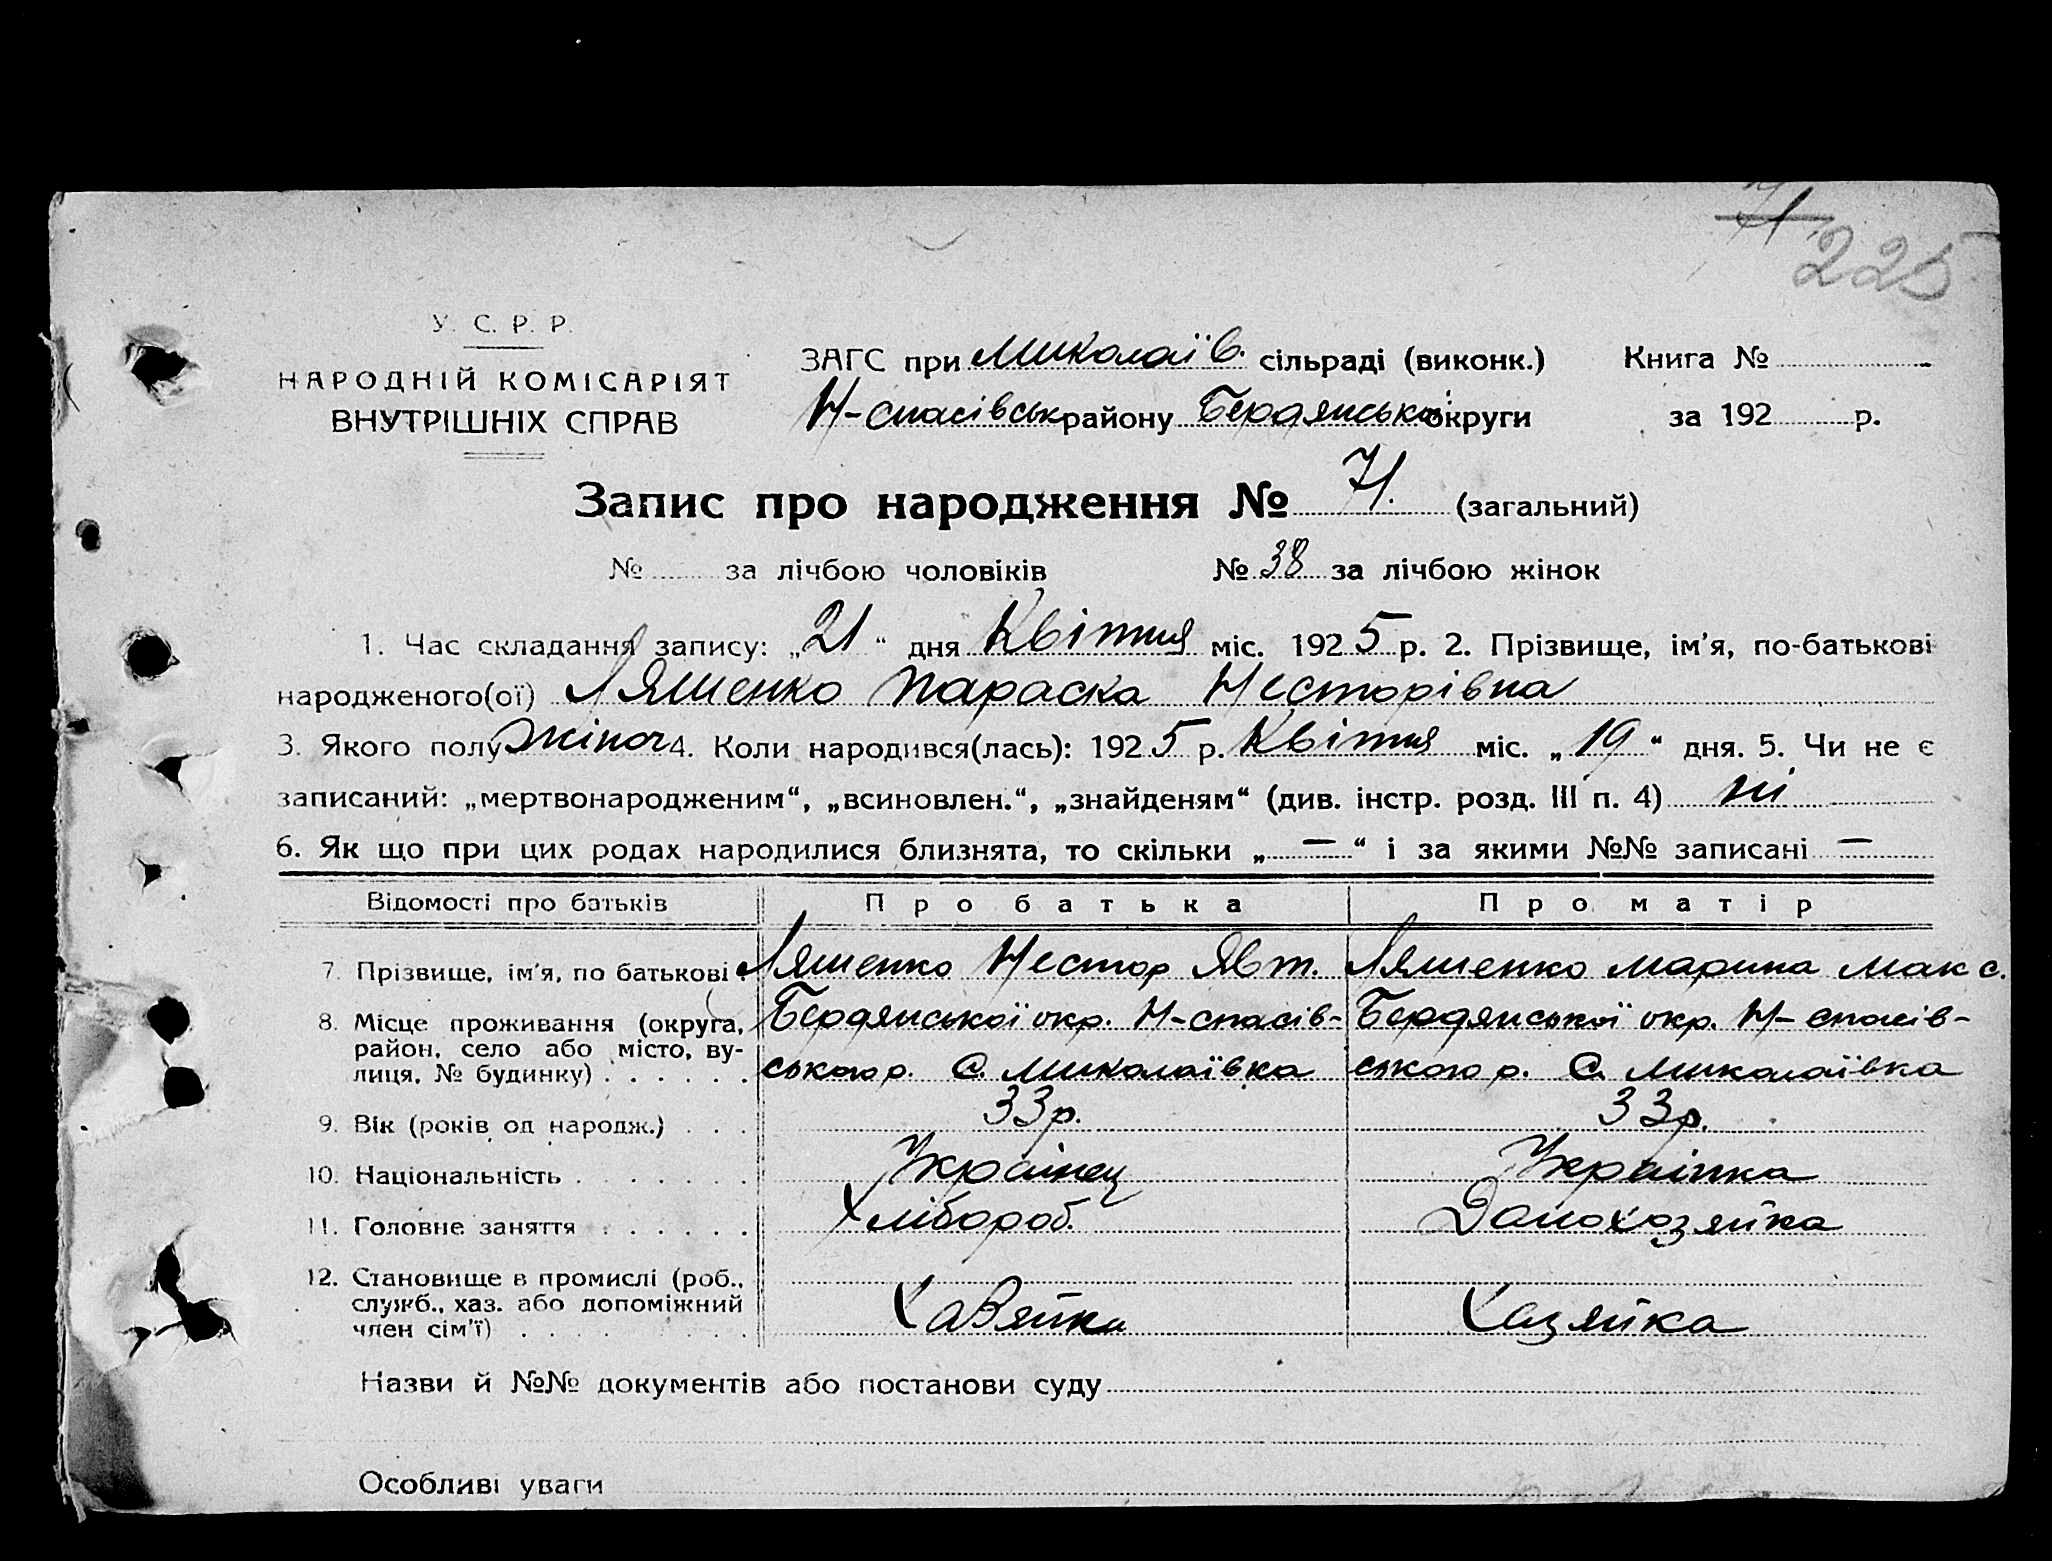 71
225
У. С. Р. Р.
НАРОДНІЙ КОМІСАРІЯТ
ВНУТРІШНІХ СПРАВ
ЗАГС при Миколаїв. сільраді (виконк.) Книга №
Н-спасівськ району Бердянської округи за 192 р.
Запис про народження № 71. (загальний)
№ за лічбою чоловіків № 38 за лічбою жінок
1. Час складання запису: „21“ дня Квітня міс. 1925 р. 2. Прізвище, ім'я, по-батькові
народженого(ої) Ляшенко Параска Несторівна
3. Якого полу жіноч 4. Коли народився(лась): 1925 р. Квітня міс. „19“ дня. 5. Чи не є
записаний: „мертвонародженим“, „всиновлен.“, „знайденям“ (див. інстр. розд. III п. 4) ні
6. Як що при цих родах народилися близнята, то скільки „—“ і за якими №№ записані —
Відомості про батьків Про батька Про матір
7. Прізвище, ім'я, по батькові . Ляшенко Нестор Явт. Ляшенко Марина Макс.
8. Місце проживання (округа, Бердянської окр. Н-спасів- Бердянської окр. Н-спасів-
район, село або місто, ву-
лиця, № будинку) . . . . . . ського р. с. Миколаївка ського р. с. Миколаївка
9. Вік (років од народж.) . . . 33 р. 33 р.
10. Національність . . . . . . . Українец Українка
11. Головне заняття . . . . . . Хлібороб. Домохозяйка
12. Становище в промислі (роб.,
служб., хаз. або допоміжний
член сім'ї) . . . . . . . . Хазяйка
Назви й №№ документів або постанови суду
Особливі уваги